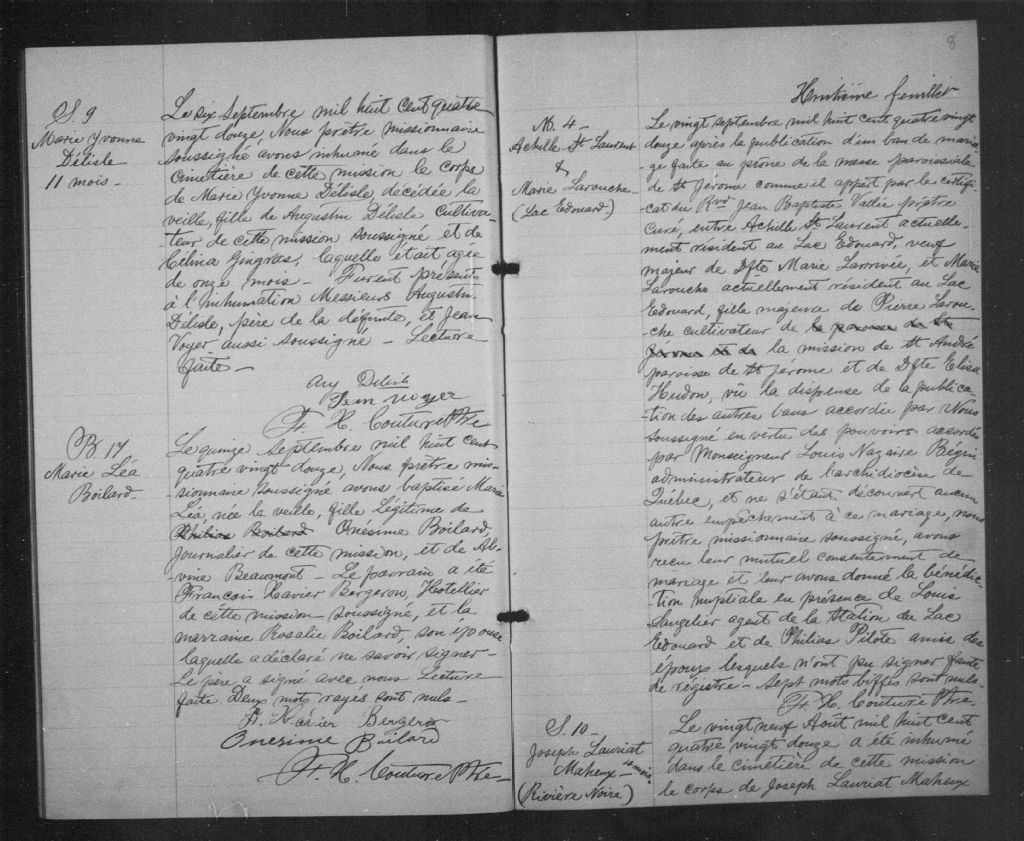 S. 9
Marie Yvonne
Délisle
11 mois -
Le six Septembre mil huit cent quatre
vingt douze, Nous prêtre missionnaire
soussigné avons inhumé dans le
Cimetière de cette mission le corps
de Marie Yvonne Délisle, décédée la
veille, fille de Augustin Délisle Cultiva-
teur de cette mission soussigné et de
Célina Gingras, laquelle était agée
de onze mois - Furent présents
à l'inhumation Messieurs Augustin
Délisle, père de la défunte, et Jean
Voyer aussi soussigné - Lecture
faite -
Aug Delisle
Jean Voyer
F. X. Couture Ptre
B. 17
Marie Léa
Boilard
Le quinze Septembre mil huit cent
quatre vingt douze, Nous prêtre mis-
sionnaire soussigné avons baptisé Marie
Léa, née la veille, fille Légitime de
Philias Boilard Onésime Boilard,
journalier de cette mission, et de Al-
vine Beaumont - Le parrain a été
Francois Xavier Bergeron, Hotellier
de cette mission soussigné, et la
marraine Rosalie Boilard, son épouse
laquelle a déclaré ne savoir signer -
Le père a signé avec nous Lecture
faite. Deux mots rayés sont nuls -
F. Xavier Bergeron
Onesime Boilard
F. X. Couture Ptre -
8
Huitième feuillet
M. 4 -
Achille St Laurent
&
Marie Larouche -
(Lac Edouard)
Le vingt septembre mil huit cent quatre vingt
douze après la publication d'un ban de maria-
ge faite au prône de la messe paroissiale
de St Jérome comme il appert par le certifi-
cat du Rvd Jean Baptiste Vallée prêtre
Curé, entre Achille St Laurent actuelle-
ment résident au Lac Edouard, veuf
majeur de Dfte Marie Larrivée, et Marie
Larouche actuellement résident au Lac
Edouard, fille majeure de Pierre Larou-
che cultivateur de la paroisse de St
Jérome et de la mission de St André
paroisse de St jérome et de Dfte Elisa
Hudon, vu la dispense de la publica-
tion des autres bans accordée par Nous
soussigné en vertu des pouvoirs accordés
par Monseigneur Louis Nazaire Bégin
administrateur de l'archidiocèse de
Québec, et ne s'étant découvert aucun
autre empêchement à ce mariage, nous
prêtre missionnaire soussigné, avons
recu leur mutuel consentement de
mariage et leur avons donné la bénédic-
tion nuptiale en présence de Louis
Laugelier agent de la Station du Lac
Edouard et de Philias Pilote amis des
époux lesquels n'ont pu signer faute
de régistre - Sept mots biffés sont nuls -
F. X. Couture Ptre -
S. 10 -
Joseph Lauriat
Maheux - 4 mois
(Rivière Noire)
Le vingt neuf Août mil huit cent
quatre vingt douze a été inhumé
dans le cimetière de cette mission
le corps de Joseph Lauriat Maheux